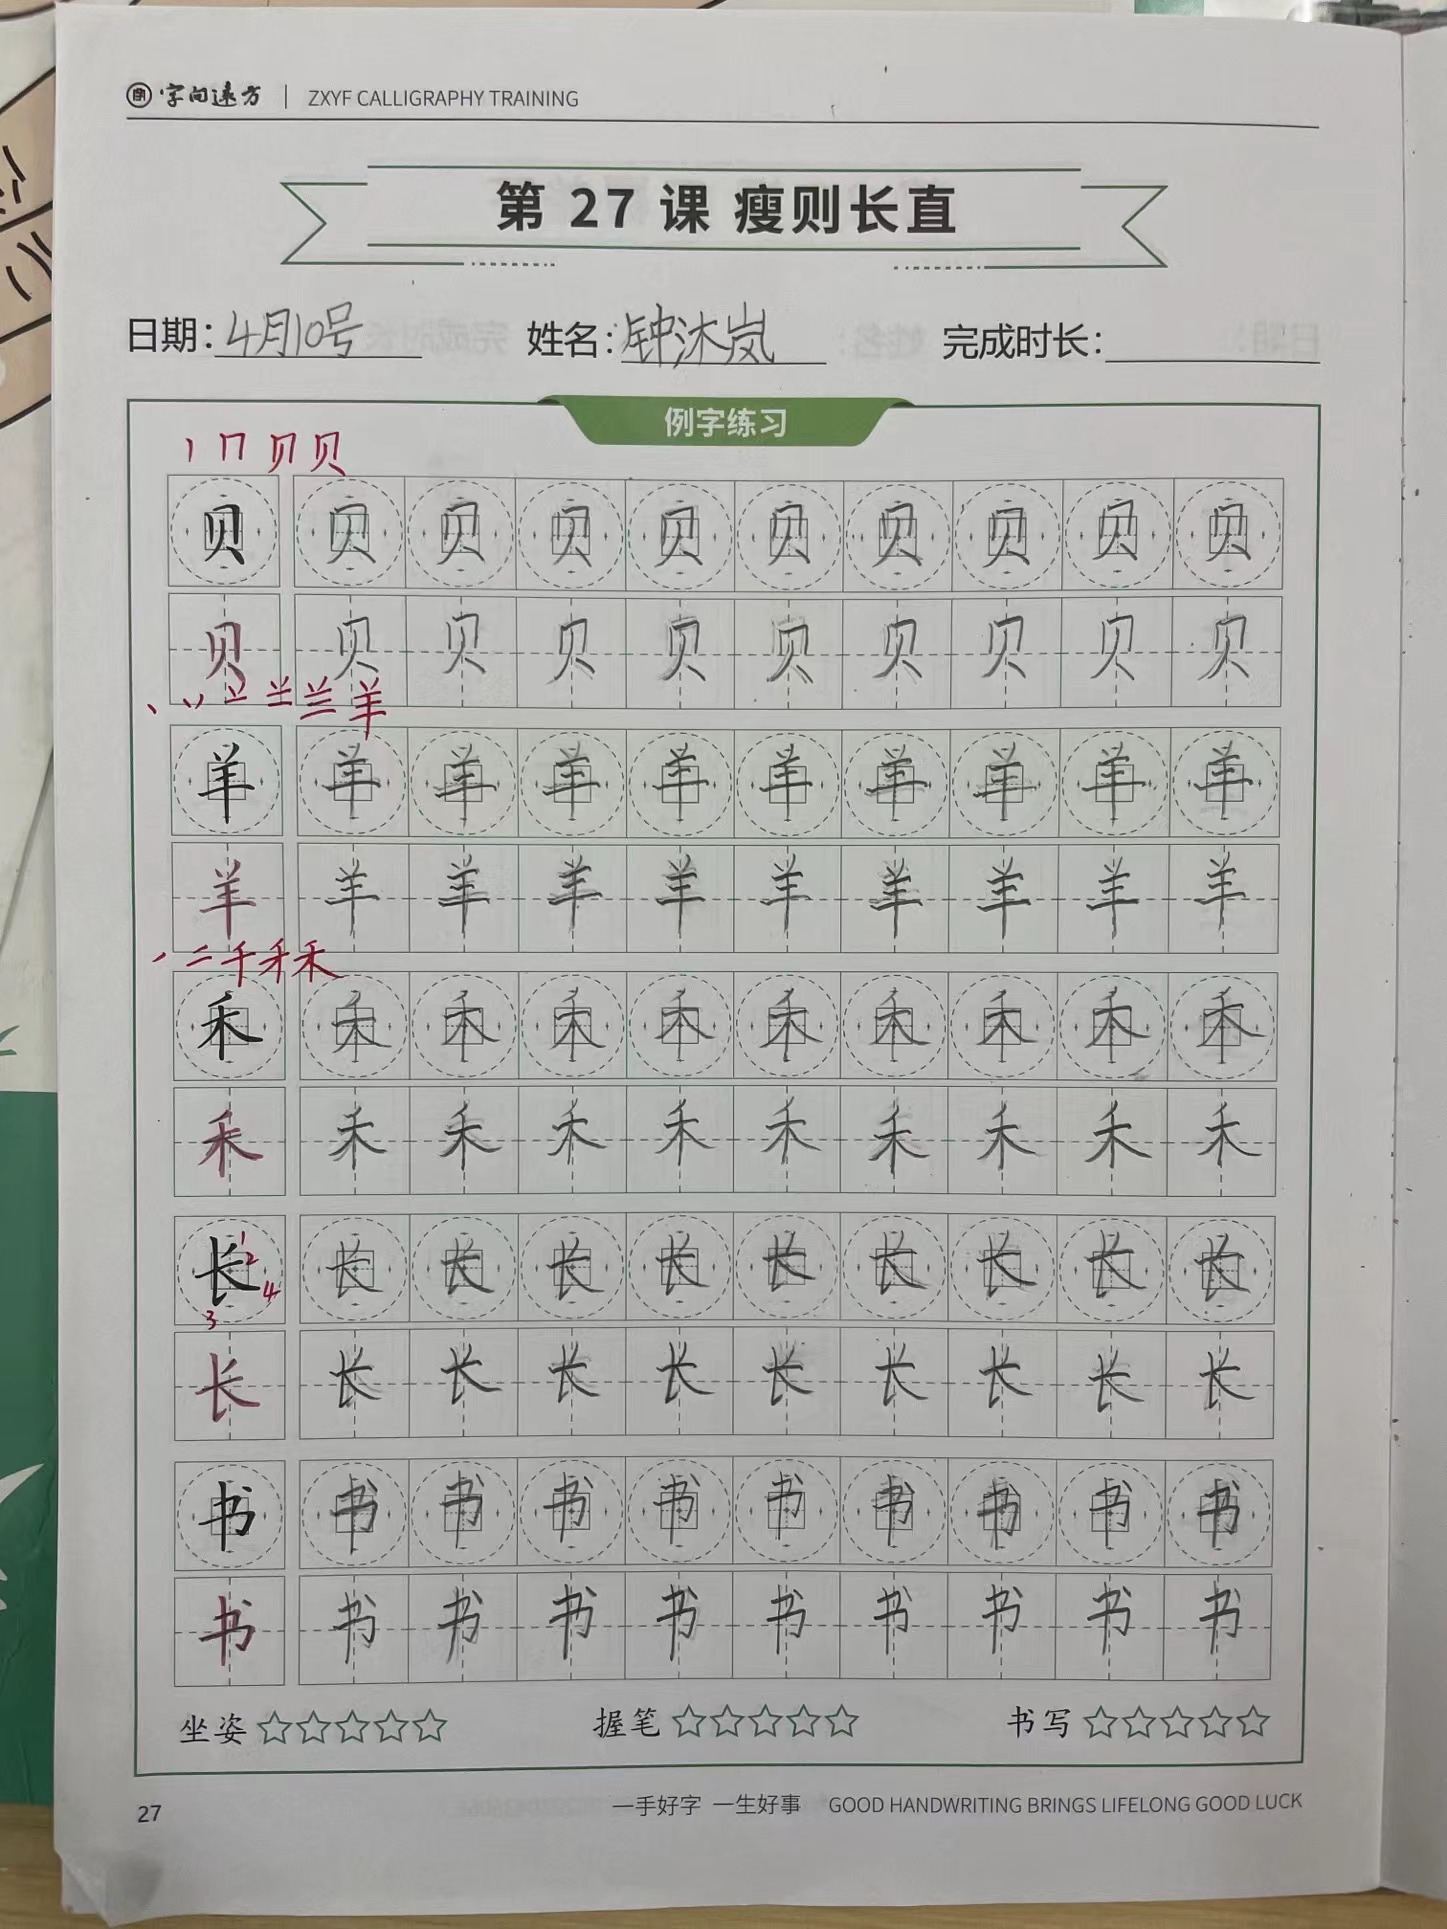 字间远方 | ZXYF CALLIGRAPHY TRAINING
第 27 课 瘦则长直
日期：4月10号 姓名：钟沐岚 完成时长：
例字练习
丨 冂 贝 贝
贝 贝 贝 贝 贝 贝 贝 贝 贝 贝
贝 贝 贝 贝 贝 贝 贝 贝 贝 贝
羊
羊 羊 羊 羊 羊 羊 羊 羊 羊 羊
羊 羊 羊 羊 羊 羊 羊 羊 羊 羊
千 禾
禾 禾 禾 禾 禾 禾 禾 禾 禾 禾
禾 禾 禾 禾 禾 禾 禾 禾 禾 禾
长 1 2 3 4 长 长 长 长 长 长 长 长 长
长 长 长 长 长 长 长 长 长 长
书 书 书 书 书 书 书 书 书 书
书 书 书 书 书 书 书 书 书 书
坐姿 ☆☆☆☆☆ 握笔 ☆☆☆☆☆ 书写 ☆☆☆☆☆
27 一手好字 一生好事 GOOD HANDWRITING BRINGS LIFELONG GOOD LUCK